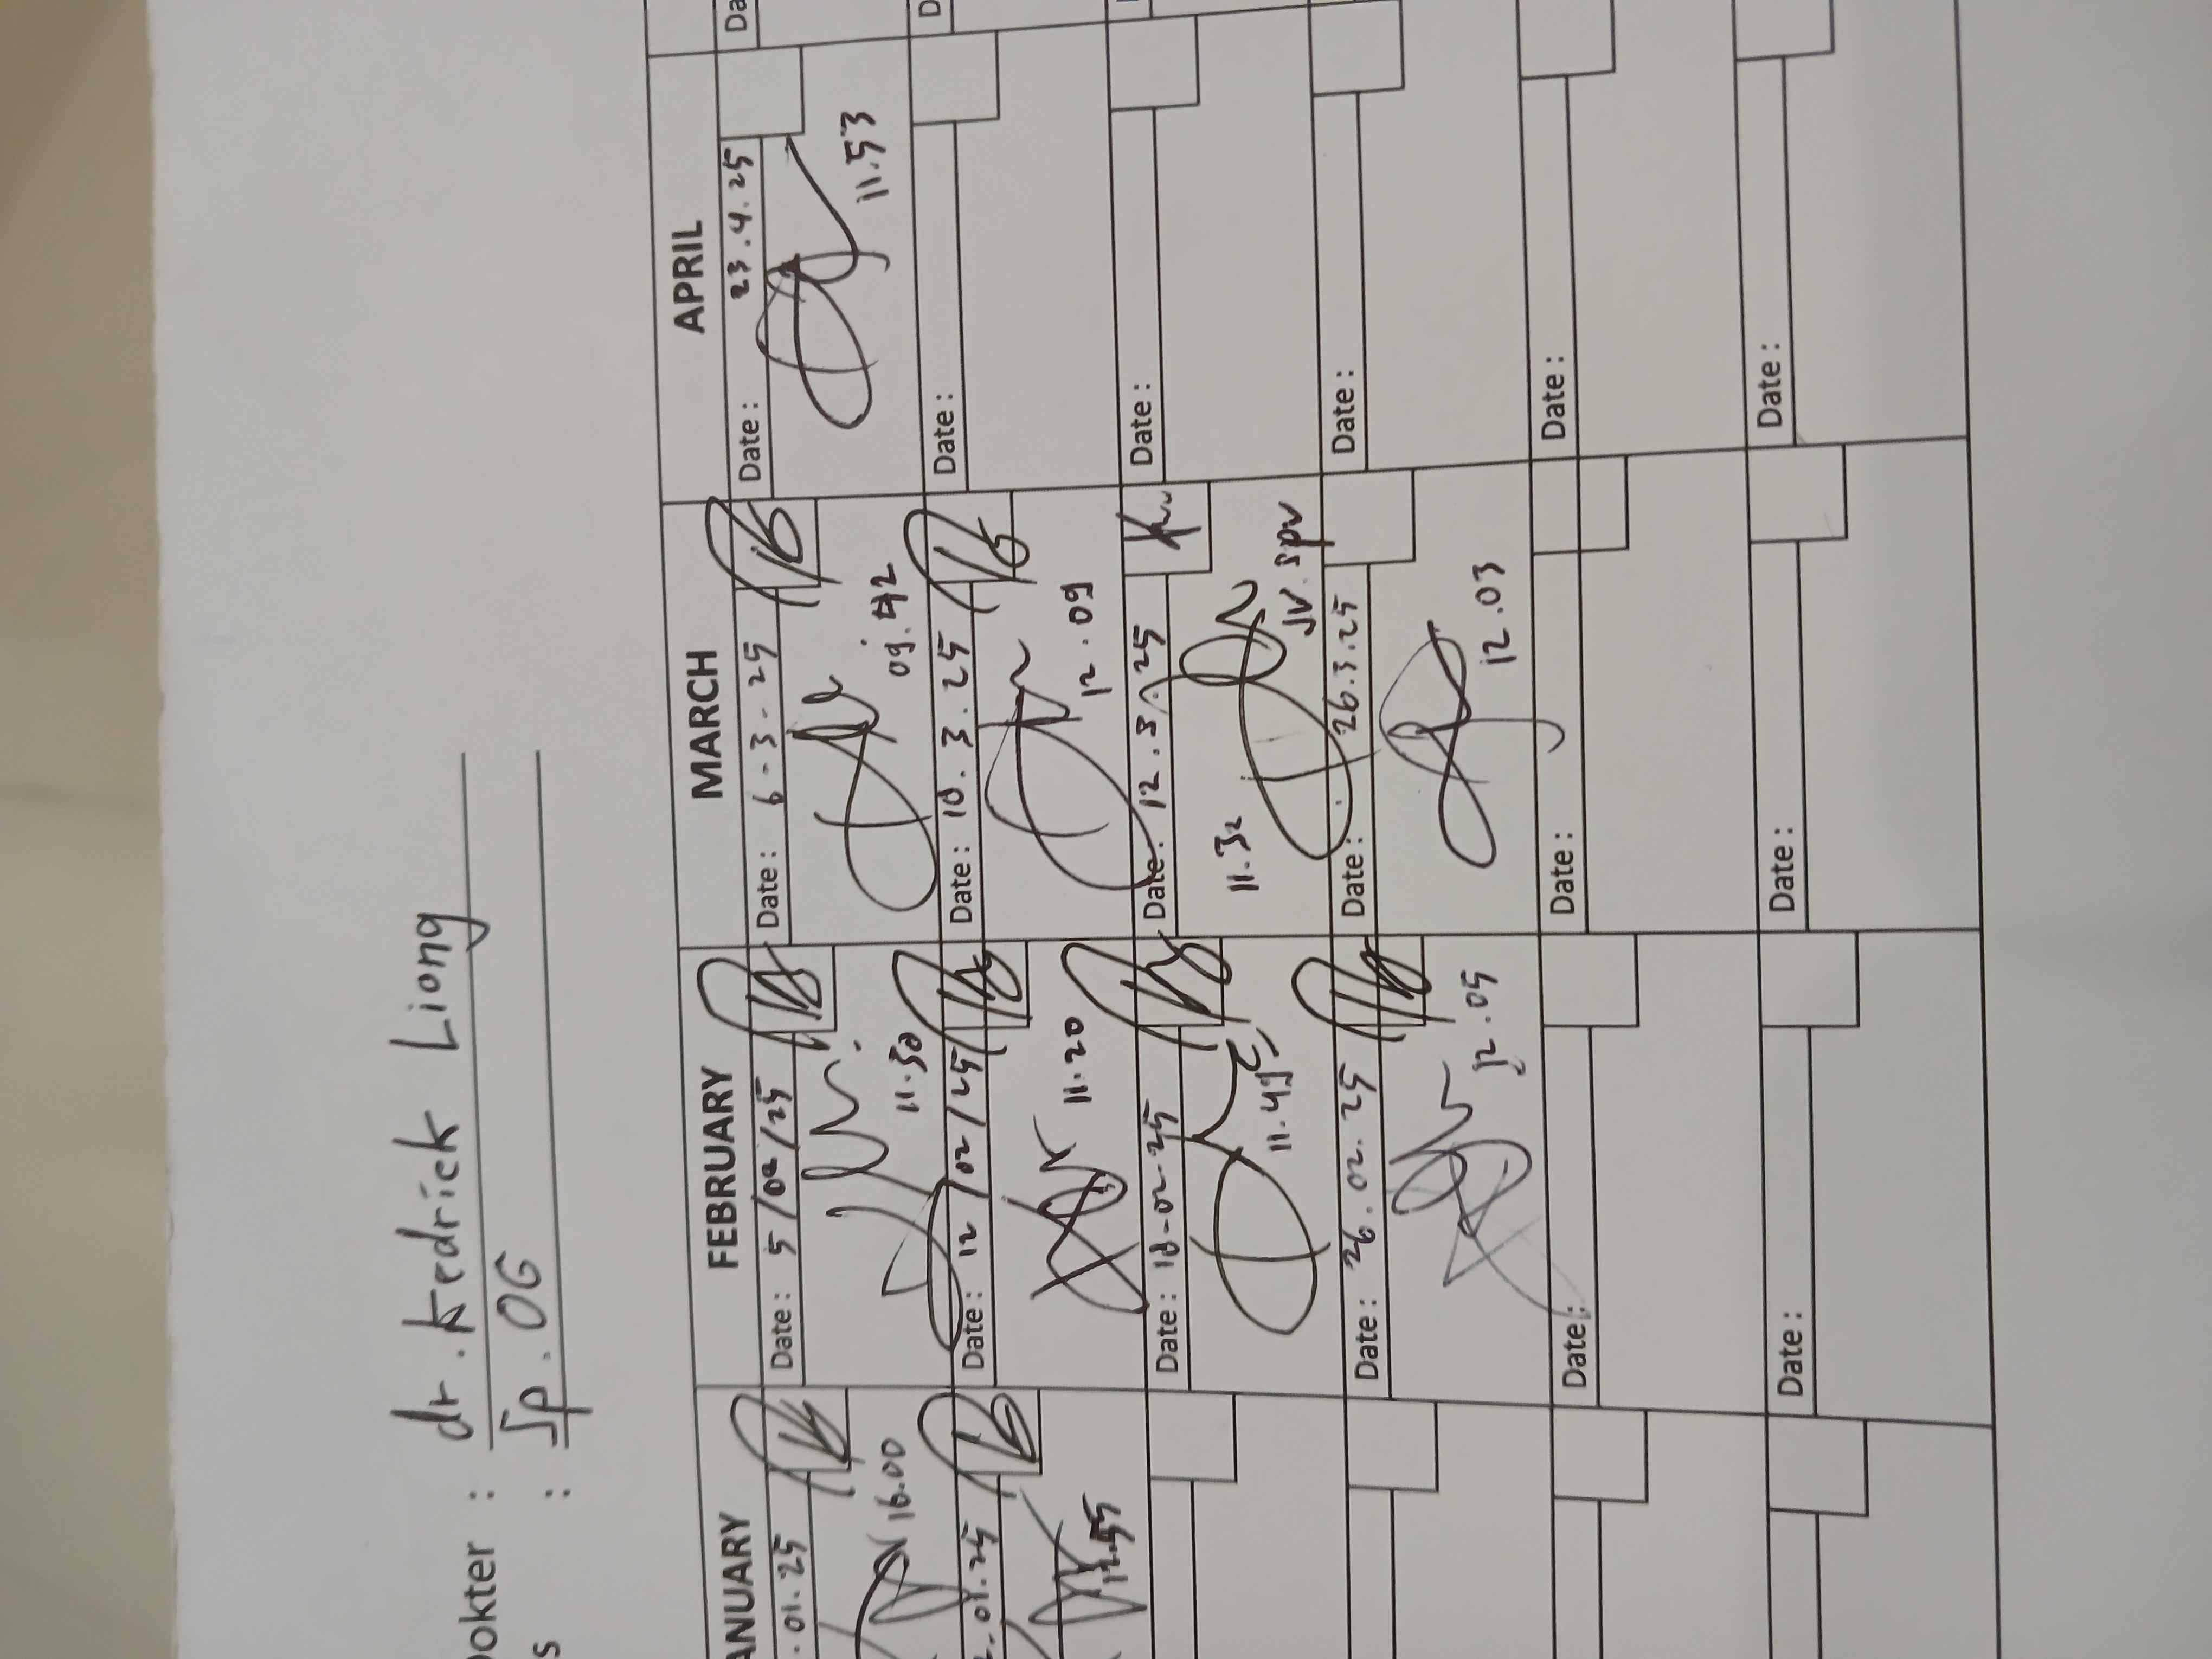 Dokter : dr. Kedrick Liong
s : Sp. OG
JANUARY FEBRUARY MARCH APRIL
. 01. 25 Date : 5 / 02 / 25 Date : 6 - 3 - 25 Date : 23 . 4 . 25 Da
16.00 11.30 09. 42 11.53
. 01. 25 Date : 12 / 02 / 25 Date : 10 . 3 . 25 Date : D
11.20 12 . 09
Date : 18 - 02 - 25 Date : 12 . 3 . 25 Date :
11.45 11.32 JV. spv
Date : 26 . 02 . 25 Date : 26.3.25 Date :
12 . 05 12.03
Date : Date : Date :
Date : Date : Date :